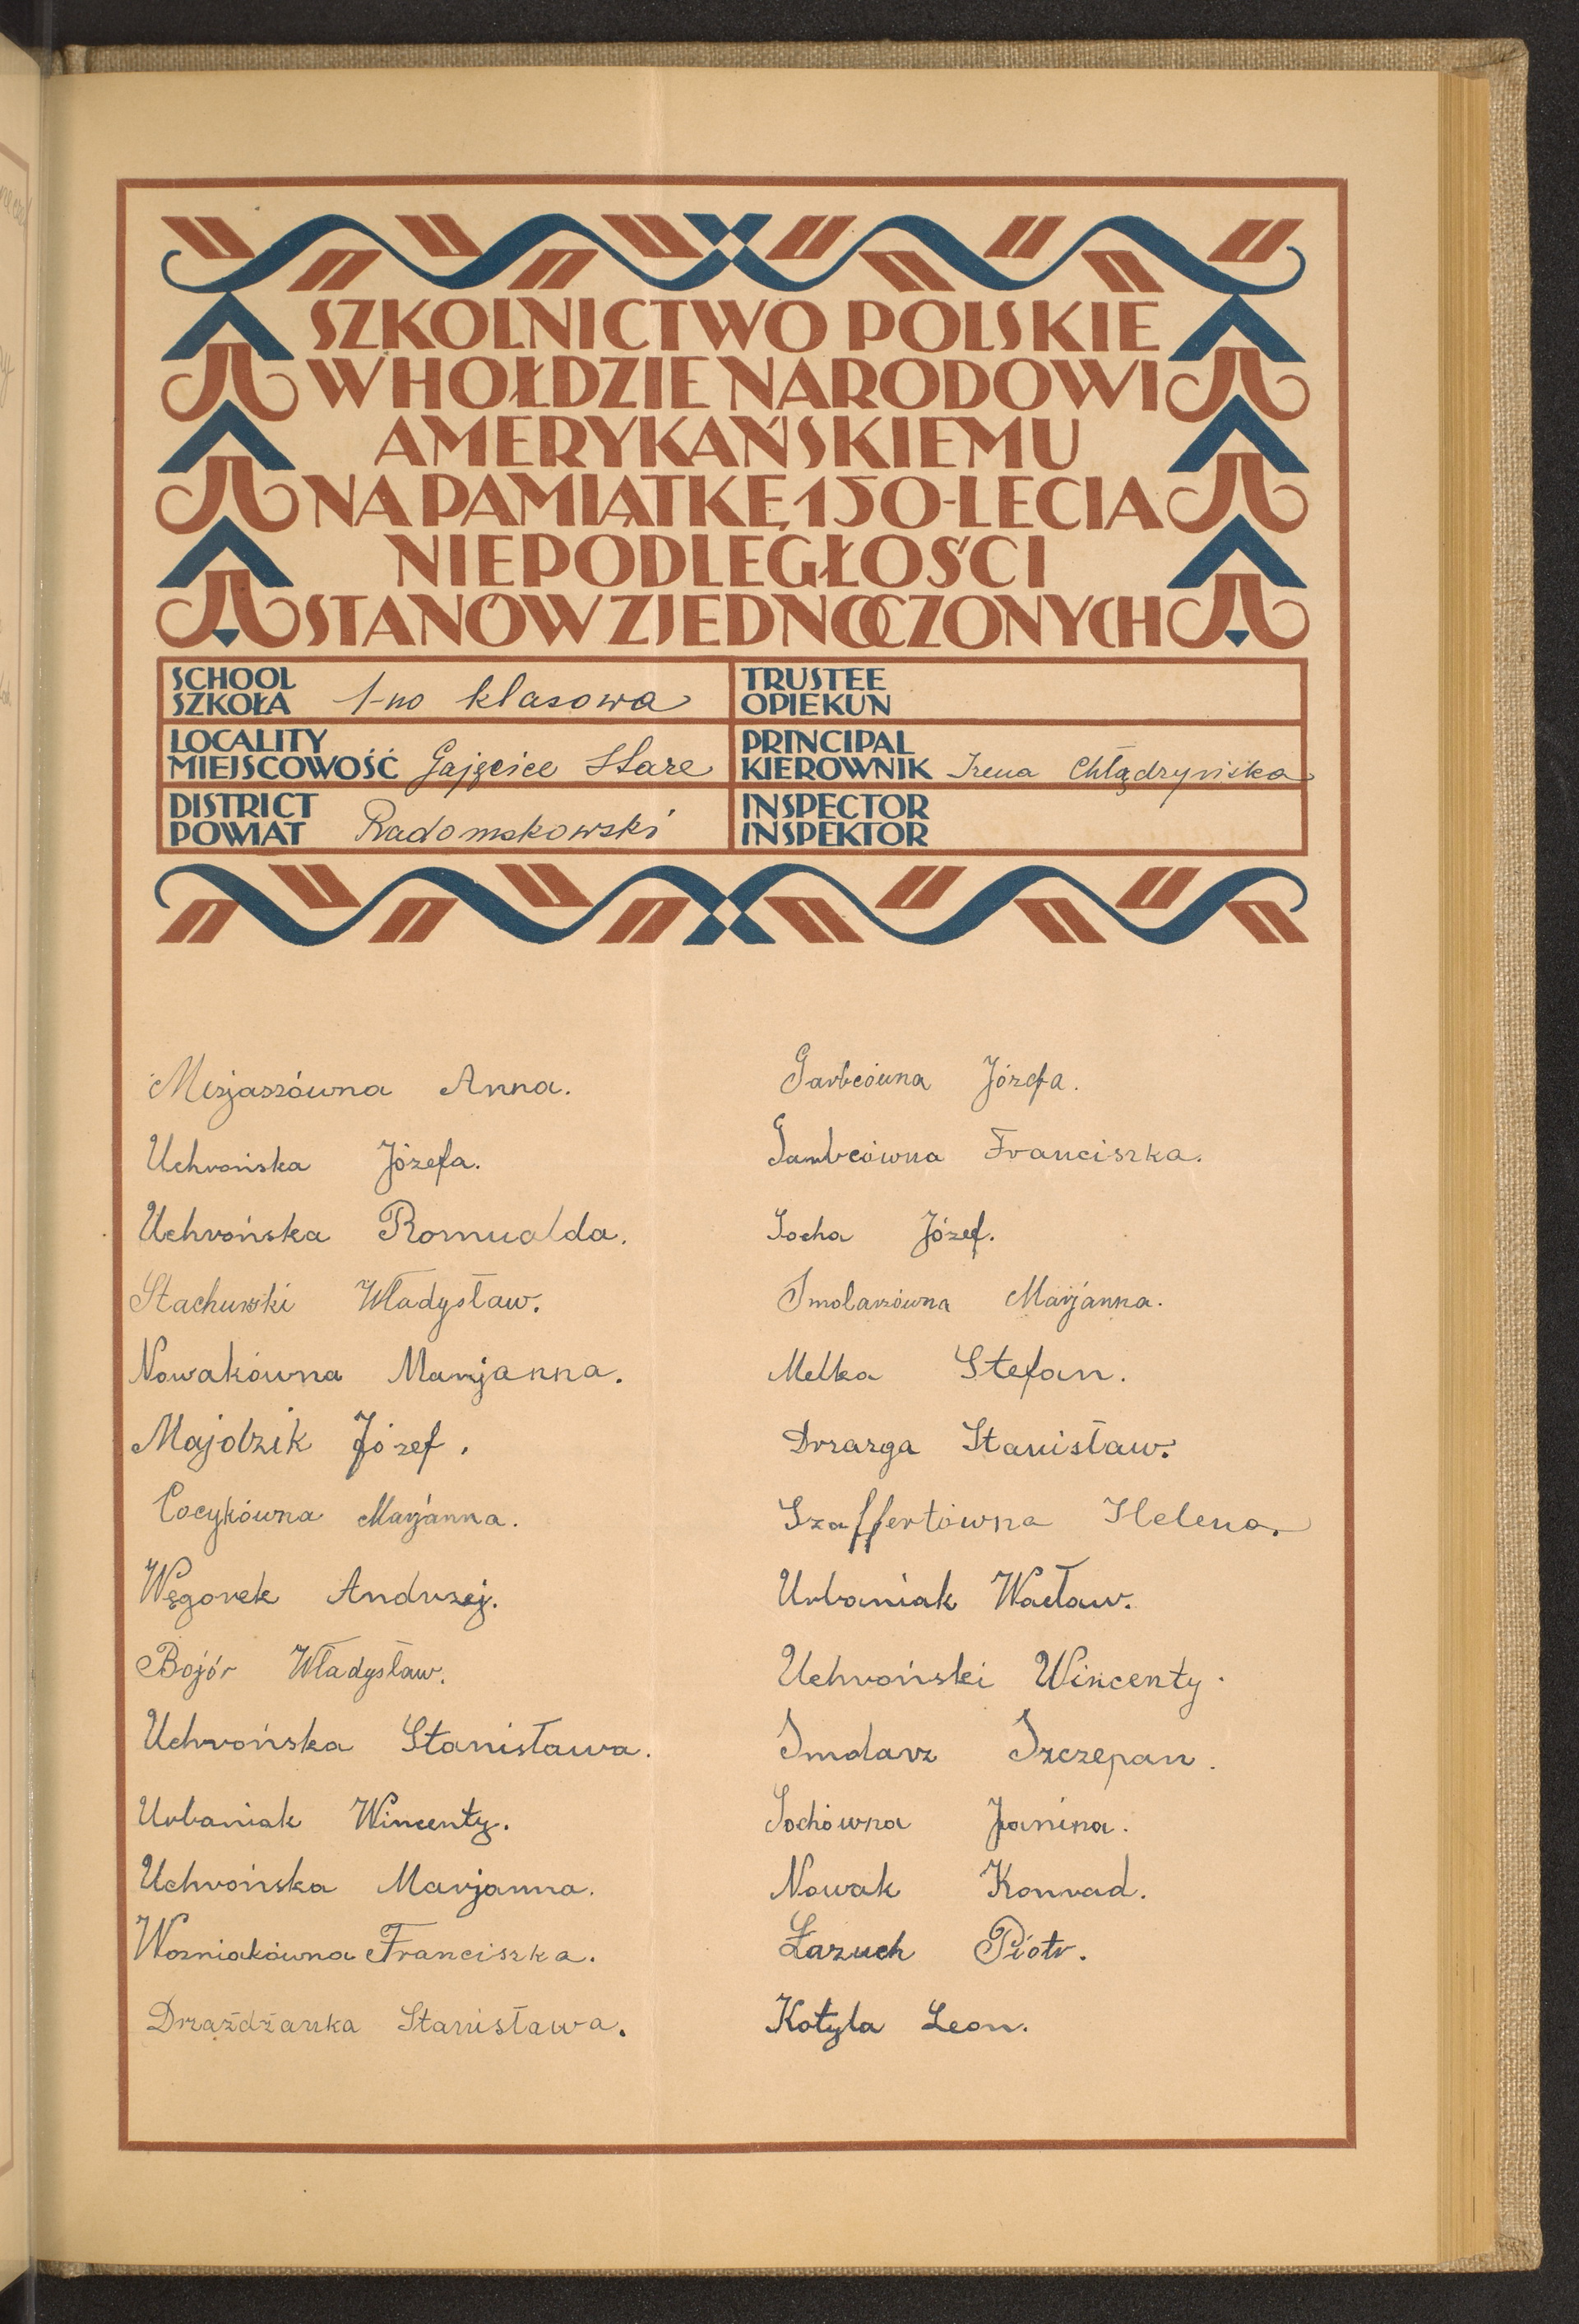 SZKOLNICTWO POLSKIE
W HOŁDZIE NARODOWI
AMERYKAŃSKIEMU
NA PAMIĄTKĘ 150-LECIA
NIEPODLEGŁOŚCI
STANÓW ZJEDNOCZONYCH
SCHOOL
SZKOŁA 1-no klasowa
TRUSTEE
OPIEKUN
LOCALITY
MIEJSCOWOŚĆ Gajęcice Stare
PRINCIPAL
KIEROWNIK Irena Chłądzyńska
DISTRICT
POWIAT Radomskowski
INSPECTOR
INSPEKTOR
Misjaszówna Anna.
Uchrońska Józefa.
Uchrońska Romualda.
Stachurski Władysław.
Nowakówna Marjanna.
Majdzik Józef.
Cocykówna Marjanna.
Węgorek Andrzej.
Bojór Władysław.
Uchrońska Stanisława.
Urbaniak Wincenty.
Uchrońska Marjanna.
Wozniakówna Franciszka.
Drzażdżanka Stanisława.
Garbcówna Józefa.
Garbcówna Franciszka.
Socha Józef.
Smolarzówna Marjanna.
Melka Stefan.
Drzazga Stanisław.
Szaffertówna Helena.
Urbaniak Wacław.
Uchroński Wincenty.
Smolarz Szczepan.
Sochówna Janina.
Nowak Konrad.
Łazuch Piotr.
Kotyla Leon.